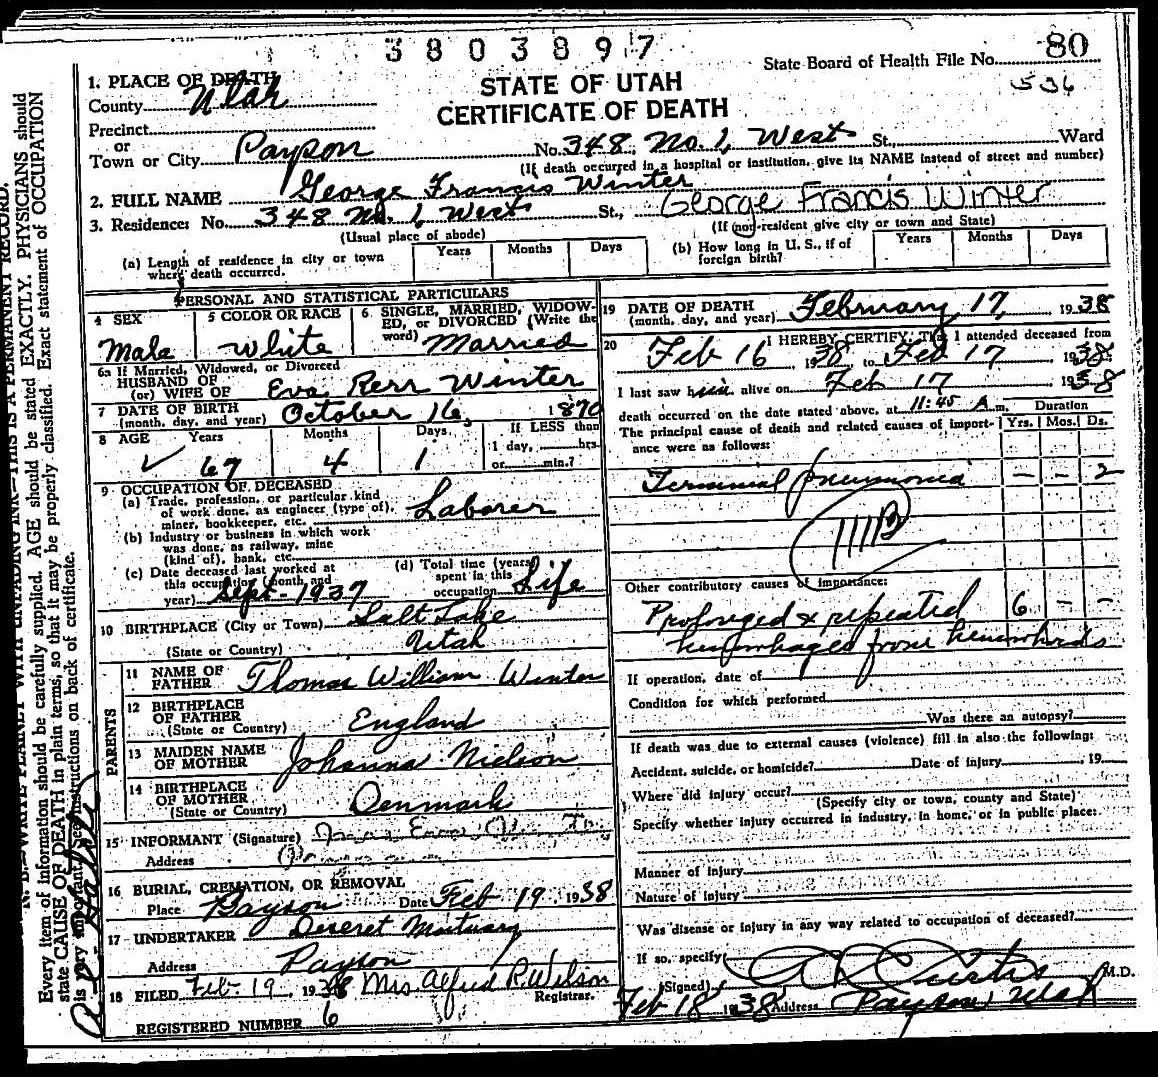 3803897
80
State Board of Health File No.
536
STATE OF UTAH
CERTIFICATE OF DEATH
1. PLACE OF DEATH
County Utah
Precinct
or
Town or City Payson No. 348 No. 1, West St., Ward
(If death occurred in a hospital or institution, give its NAME instead of street and number)
2. FULL NAME George Francis Winter
George Francis Winter
3. Residence: No. 348 No. 1, West St.,
(Usual place of abode)
(If non-resident give city or town and State)
(a) Length of residence in city or town where death occurred. Years Months Days
(b) How long in U. S., if of foreign birth? Years Months Days
PERSONAL AND STATISTICAL PARTICULARS
4 SEX
Male
5 COLOR OR RACE
White
6 SINGLE, MARRIED, WIDOWED, or DIVORCED (Write the word) Married
6a If Married, Widowed, or Divorced
HUSBAND OF
(or) WIFE OF Eva Kerr Winter
7 DATE OF BIRTH
(month, day, and year) October 16, 1870
8 AGE Years Months Days If LESS than
1 day, hrs.
or min.?
67 4 1
9 OCCUPATION OF DECEASED
(a) Trade, profession, or particular kind
of work done, as engineer (type of),
miner, bookkeeper, etc. Laborer
(b) Industry or business in which work
was done, as railway, mine
(kind of), bank, etc.
(c) Date deceased last worked at
this occupation (month and
year) Sept - 1937
(d) Total time (years)
spent in this
occupation Life
10 BIRTHPLACE (City or Town) Salt Lake
(State or Country) Utah
PARENTS
11 NAME OF
FATHER Thomas William Winter
12 BIRTHPLACE
OF FATHER
(State or Country) England
13 MAIDEN NAME
OF MOTHER Johanna Nielson
14 BIRTHPLACE
OF MOTHER
(State or Country) Denmark
15 INFORMANT (Signature)
Address
16 BURIAL, CREMATION, OR REMOVAL
Place Payson Date Feb 19 1938
17 UNDERTAKER Deseret Mortuary
Address Payson
18 FILED Feb. 19, 1938 Mrs Alfred R. Wilson
Registrar.
REGISTERED NUMBER 6
19 DATE OF DEATH
(month, day, and year) February 17, 1938
20 I HEREBY CERTIFY, That I attended deceased from
Feb 16, 1938 to Feb 17, 1938
I last saw him alive on Feb 17 1938
death occurred on the date stated above, at 11:45 A m.
Duration
The principal cause of death and related causes of importance were as follows: Yrs. Mos. Ds.
Terminal pneumonia - - 2
Other contributory causes of importance:
Prolonged & repeated 6 - -
hemorrhages from hemorrhoids
If operation, date of
Condition for which performed
Was there an autopsy?
If death was due to external causes (violence) fill in also the following:
Accident, suicide, or homicide? Date of injury 19
Where did injury occur?
(Specify city or town, county and State)
Specify whether injury occurred in industry, in home, or in public place:
Manner of injury
Nature of injury
Was disease or injury in any way related to occupation of deceased?
If so, specify
(Signed) Curtis M.D.
Feb 18 1938 Address Payson Utah
N. B.—WRITE PLAINLY WITH UNFADING INK—THIS IS A PERMANENT RECORD.
Every item of information should be carefully supplied. AGE should be stated EXACTLY. PHYSICIANS should
state CAUSE OF DEATH in plain terms, so that it may be properly classified. Exact statement of OCCUPATION
is very important. See instructions on back of certificate.